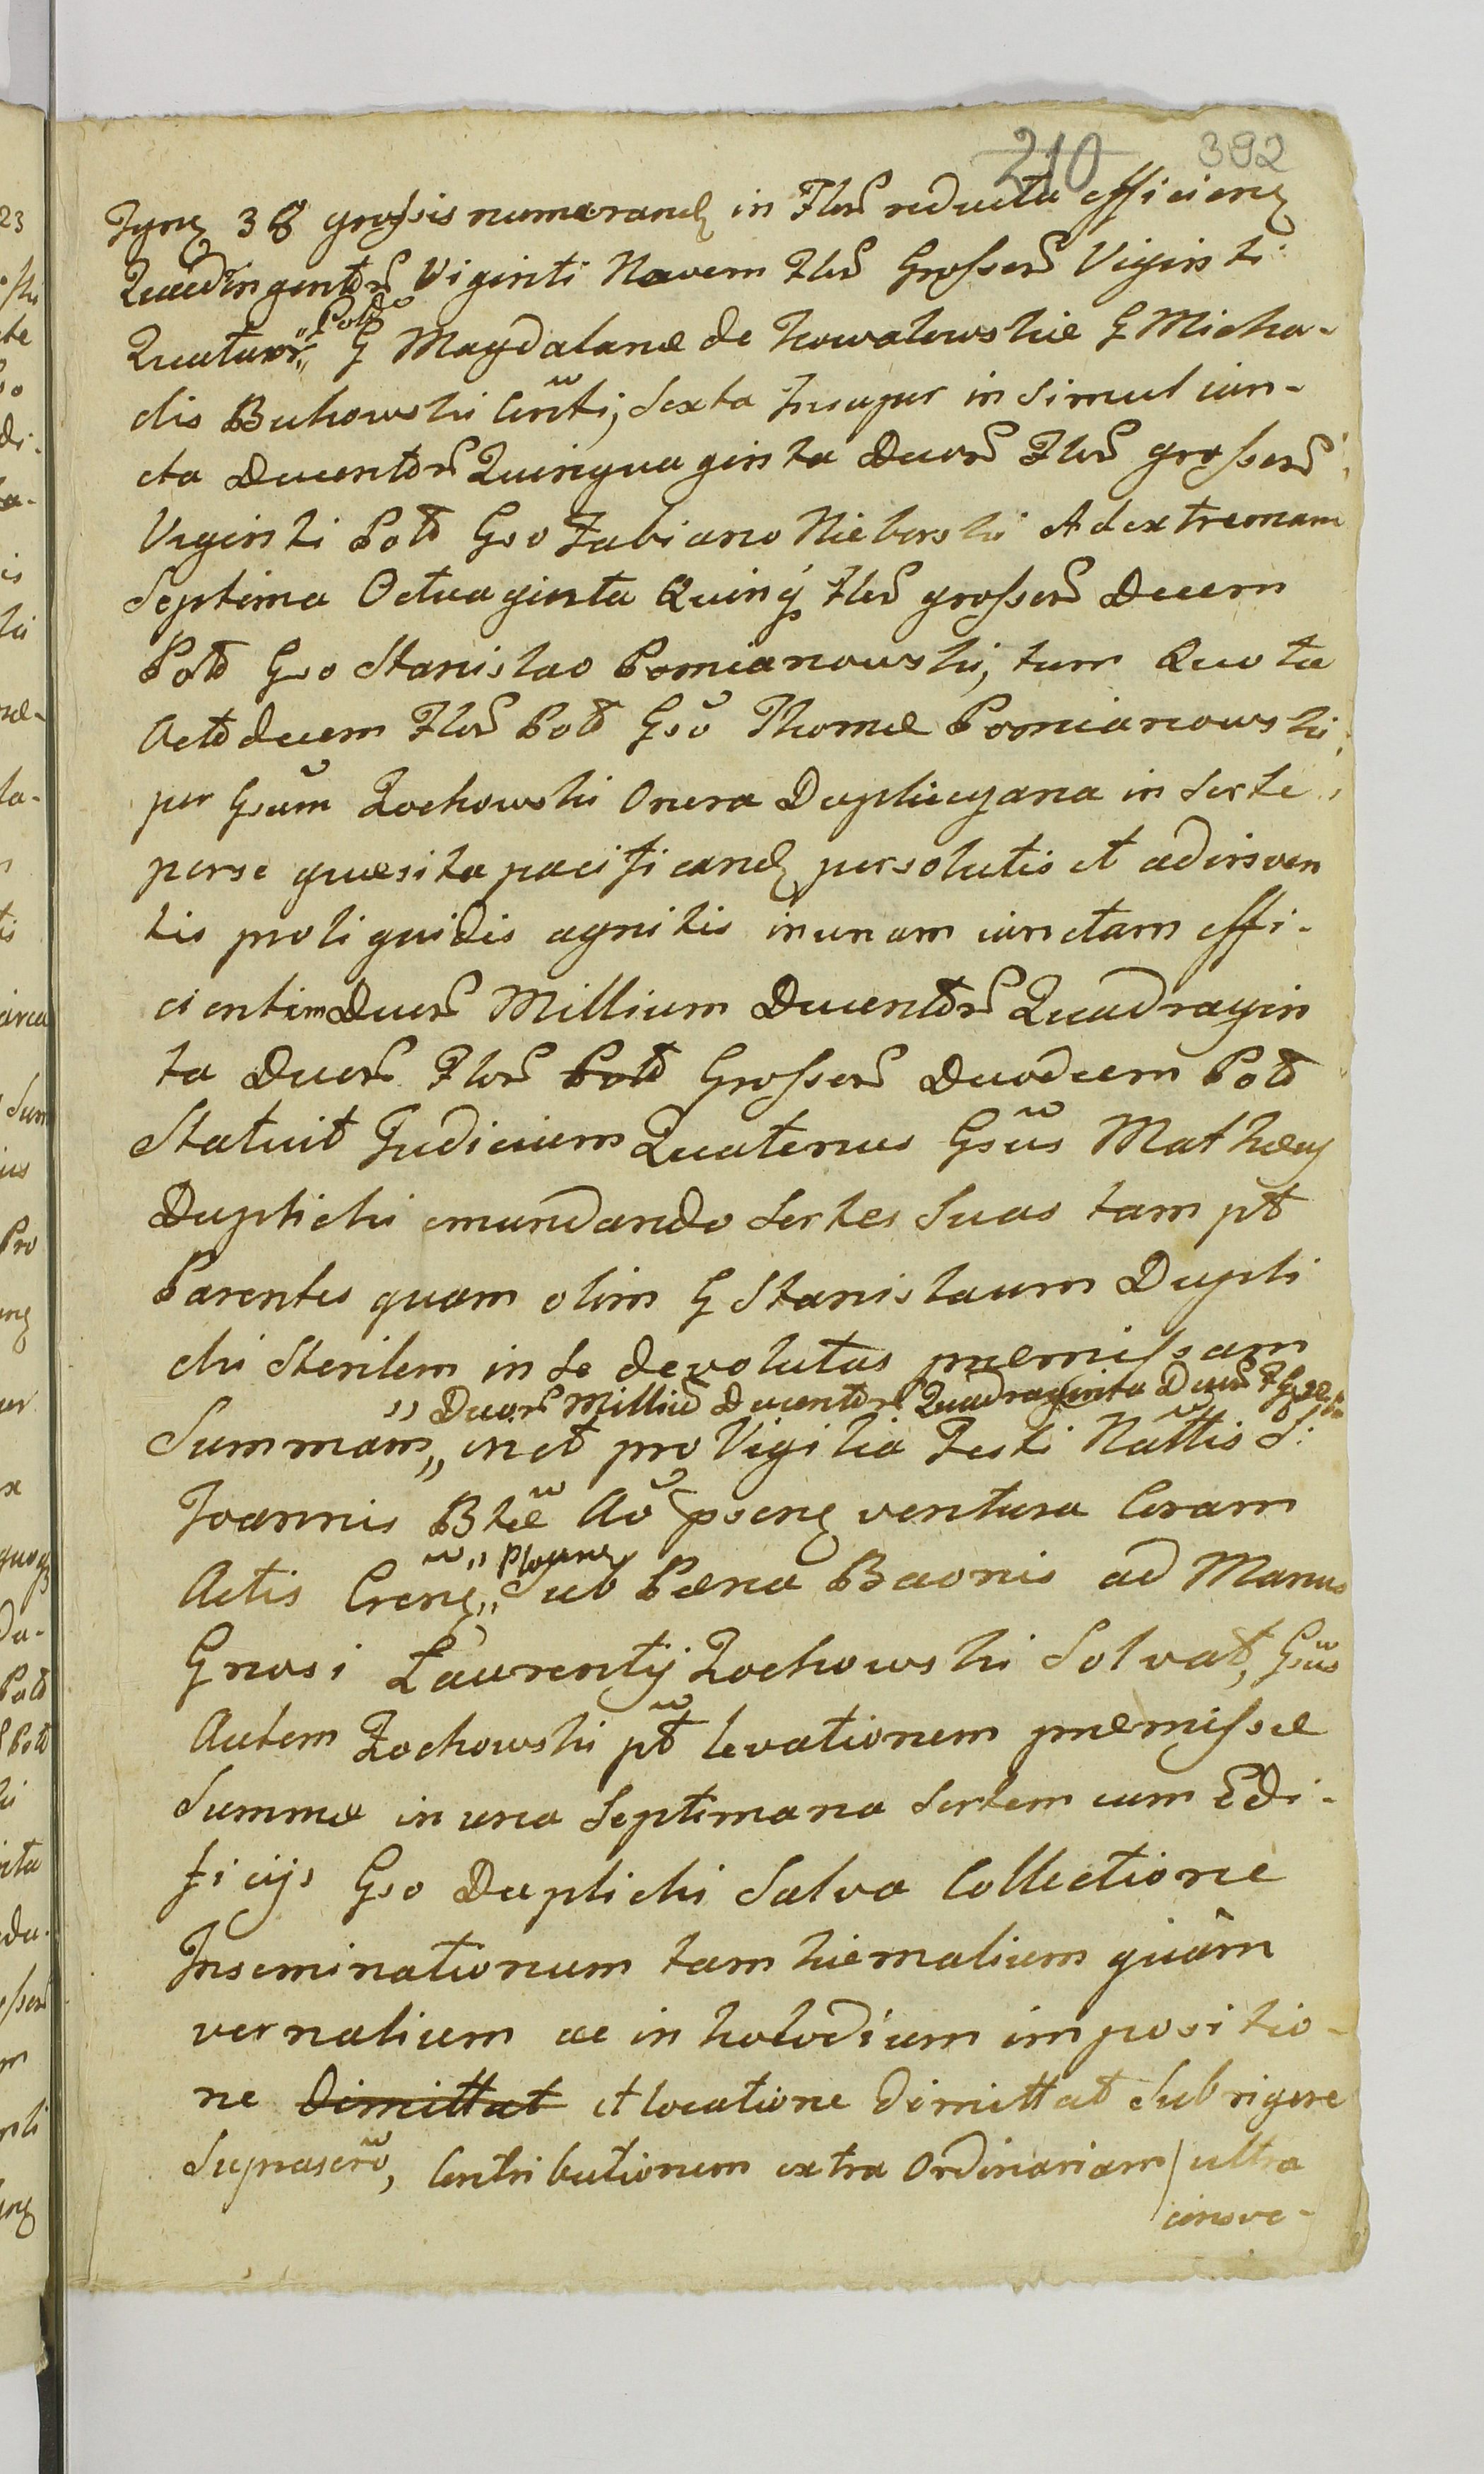 210 392
Tynf 38 grossis numerand in Flor reducta efficien
Quadringentor Viginti Novem Flor Grossor Viginti
Quatuor „Pold G Magdalenæ de Kowalowskie G Micha-
elis Bukowski Conti, Sexta Insuper in simul iun-
cta Ducentor Quinquaginta Duor Flor grossor
Viginti Pold Gso Fabiano Nieborski Ad extremam
Septima Octuaginta Quinq Flor grossor Decem
Pold Gso Stanislao Pomianowski, tum Quota
Octodecem Flor Pold Gso Thomæ Pomianowski
per Gsum Zochowski Onera Duplicyana in sorte
per se quæsita pacificand persolutis et adinven
tis pro liquidis agnitis in unam iunctam effi-
cientem Duor Millium Ducentor Quadragin
ta Duor Flor Pold Grossor Duodecem Pold
Statuit Judicium Quatenus Gsus Mathæus
Duplicki emundando Sortes Suas tam pt
Parentes quam olim G Stanislaum Dupli
cki Sterilem in se devolutas præmissam
„Duor Milliu Ducentor Quadraginta Duor F
Summam„ in et pro Vigilia Festi Nattis S:
Joannis Btæ Ao psenq ventura Coram
Actis Cren „Plocen Sub Pæna Baonis ad Manus
Gnosi Laurentij Zochowski Solvat, Gsus
Autem Zochowski pt levationem præmissæ
Summæ in una Septimana Sortem cum Edi-
ficijs Gso Duplicki Salva Collectione
Inseminationum tam hiemalium quàm
vernalium ac in horodium impositio-
ne dimittat et locatione dimittat Sub rigore
Suprascro, Contributionem extra Ordinariam / ultra